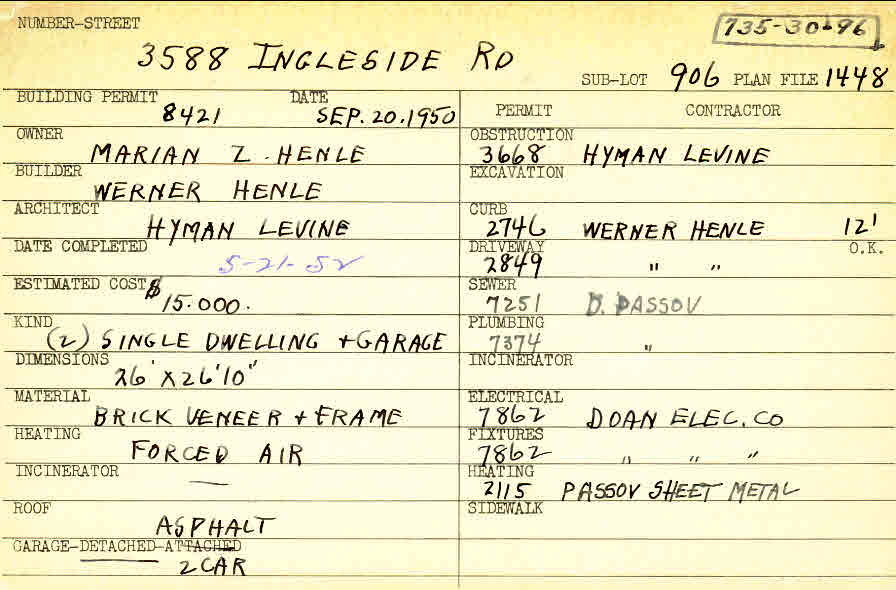 NUMBER-STREET
735-30-96
3588 INGLESIDE RD
SUB-LOT 906 PLAN FILE 1448
BUILDING PERMIT DATE
8421 SEP. 20. 1950
PERMIT CONTRACTOR
OWNER
MARIAN Z. HENLE
BUILDER
WERNER HENLE
ARCHITECT
HYMAN LEVINE
DATE COMPLETED
5-21-52
ESTIMATED COST $
15.000.
KIND
(2) SINGLE DWELLING + GARAGE
DIMENSIONS
26' X 26'10"
MATERIAL
BRICK VENEER + FRAME
HEATING
FORCED AIR
INCINERATOR
—
ROOF
ASPHALT
GARAGE-DETACHED-ATTACHED
2 CAR
OBSTRUCTION
3668 HYMAN LEVINE
EXCAVATION
CURB
2746 WERNER HENLE 12'
DRIVEWAY O.K.
2849 " "
SEWER
7251 D. PASSOV
PLUMBING
7374 "
INCINERATOR
ELECTRICAL
7862 DOAN ELEC. CO
FIXTURES
7862 " " "
HEATING
2115 PASSOV SHEET METAL
SIDEWALK